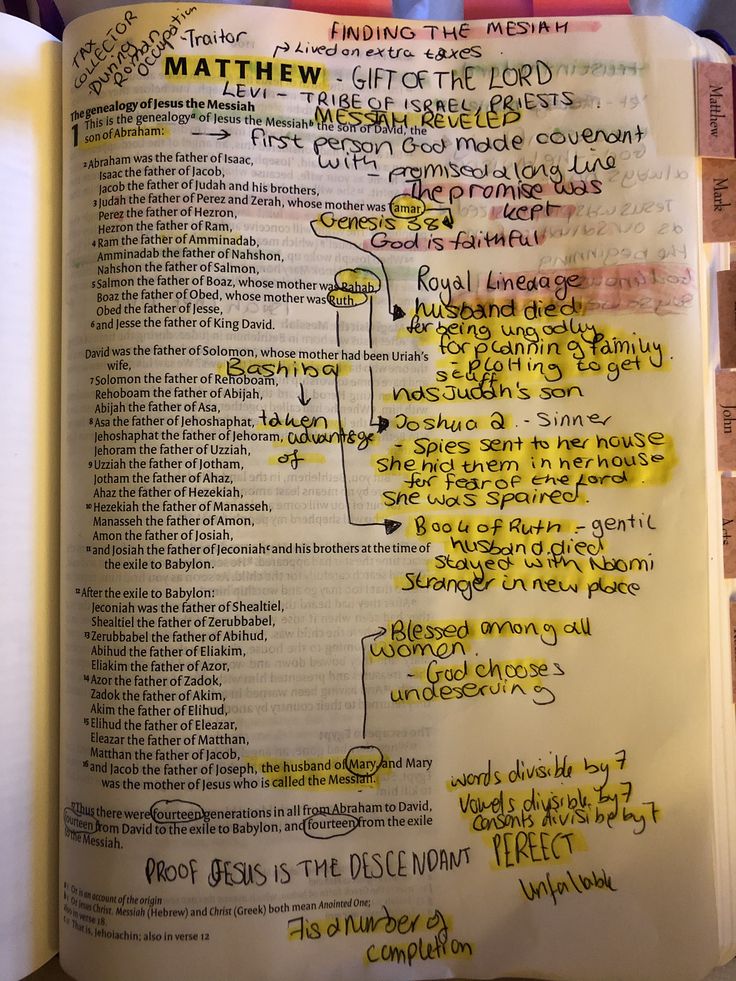 FINDING THE MESIAH
TAX
COLLECTOR
During
Roman
Occupation
-Traitor
Lived on extra taxes
MATTHEW - GIFT OF THE LORD
LEVI - TRIBE OF ISRAEL, PRIESTS.
The genealogy of Jesus the Messiah
MESSIAH REVELED
1 This is the genealogyᵃ of Jesus the Messiahᵇ the son of David, the
son of Abraham:
first person God made covenant
with - promised a long line
The promise was
kept
Genesis 38
God is faithful
2 Abraham was the father of Isaac,
Isaac the father of Jacob,
Jacob the father of Judah and his brothers,
3 Judah the father of Perez and Zerah, whose mother was Tamar,
Perez the father of Hezron,
Hezron the father of Ram,
4 Ram the father of Amminadab,
Amminadab the father of Nahshon,
Nahshon the father of Salmon,
5 Salmon the father of Boaz, whose mother was Rahab,
Boaz the father of Obed, whose mother was Ruth,
Obed the father of Jesse,
6 and Jesse the father of King David.
Royal Lineage
husband died
for being ungodly
for planning family.
- plotting to get
stuff
nds Judah's son
David was the father of Solomon, whose mother had been Uriah's
wife,
Bashiba
7 Solomon the father of Rehoboam,
Rehoboam the father of Abijah,
Abijah the father of Asa,
8 Asa the father of Jehoshaphat,
Jehoshaphat the father of Jehoram,
Jehoram the father of Uzziah,
taken
advantage
of
9 Uzziah the father of Jotham,
Jotham the father of Ahaz,
Ahaz the father of Hezekiah,
10 Hezekiah the father of Manasseh,
Manasseh the father of Amon,
Amon the father of Josiah,
11 and Josiah the father of Jeconiahᶜ and his brothers at the time of
the exile to Babylon.
Joshua 2. - Sinner
- Spies sent to her house
she hid them in her house
for fear of the Lord.
She was spaired.
Book of Ruth - gentil
husband died
stayed with Naomi
Stranger in new place
12 After the exile to Babylon:
Jeconiah was the father of Shealtiel,
Shealtiel the father of Zerubbabel,
13 Zerubbabel the father of Abihud,
Abihud the father of Eliakim,
Eliakim the father of Azor,
14 Azor the father of Zadok,
Zadok the father of Akim,
Akim the father of Elihud,
15 Elihud the father of Eleazar,
Eleazar the father of Matthan,
Matthan the father of Jacob,
16 and Jacob the father of Joseph, the husband of Mary, and Mary
was the mother of Jesus who is called the Messiah.
Blessed among all
women.
- God chooses
undeserving
17 Thus there were fourteen generations in all from Abraham to David,
fourteen from David to the exile to Babylon, and fourteen from the exile
to the Messiah.
words divisible by 7
vowels divisible by 7
consants divisible by 7
PERFECT
unfailable
PROOF JESUS IS THE DESCENDANT
a 1 Or is an account of the origin
b 1 Or Jesus Christ. Messiah (Hebrew) and Christ (Greek) both mean Anointed One;
also in verse 18.
c 11 That is, Jehoiachin; also in verse 12
7 is a number of
completion
Matthew
Mark
John
Acts